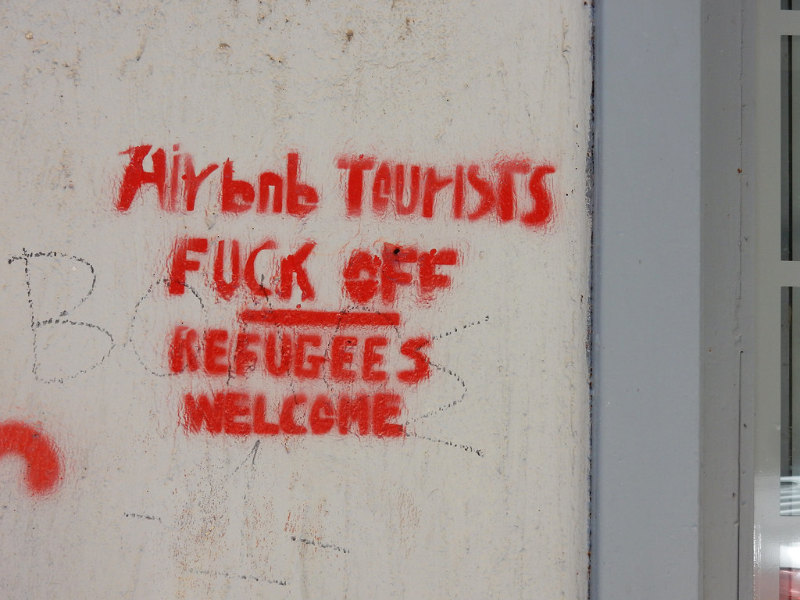 Airbnb TOURISTS
FUCK OFF
REFUGEES
WELCOME